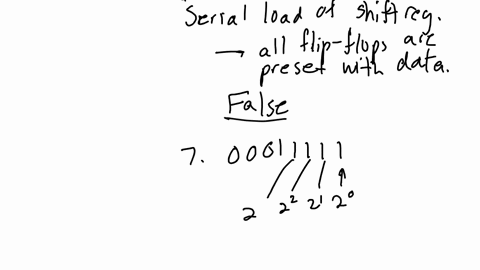 Serial load of shift reg.
→ all flip-flops are
preset with data.
False
7. 00011111
2 2² 2¹ 2⁰